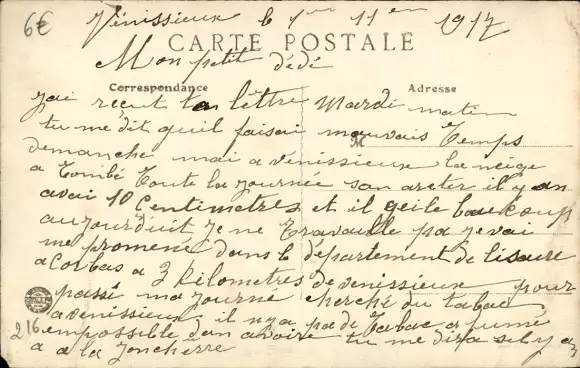 6€
Vénissieux le 1er 11 em 1917
CARTE POSTALE
Mon petit dédé
Correspondance
Adresse
jai reçut ta lêttre Mardi matin
tu me dit quil faisai mauvais Temps
demanche mai a venissieux la neige
a Tombé Toute la journée san areter il y an
avai 10 Centimetres et il gèile baucoup
aujourd'uit je ne Travaille pa je vai
me promené dans le département de lisaire
a Corbas a 3 kilometres de venissieux pour
passé ma journé cherché du tabac
a venissieux il n'y a pa de Tabac a fumé
216 empossible dan avoire tu me dira sel y a
a a la Jonchèrre